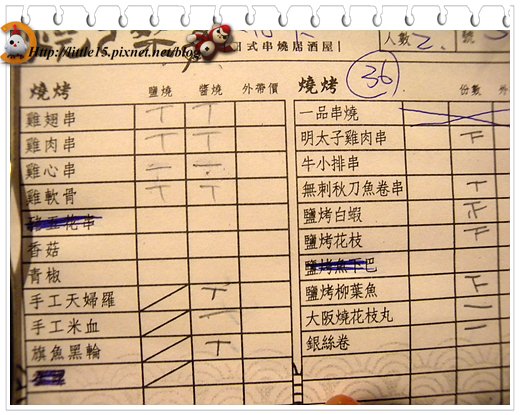 Http://little15.pixnet.net/blog
日式串燒居酒屋
人數 2
號
36
燒烤 鹽燒 醬燒 外帶價
雞翅串 T T
雞肉串 T T
雞心串
雞軟骨 T T
香菇
青椒
手工天婦羅 T
手工米血 一
旗魚黑輪 T
燒烤 份數 外
一品串燒
明太子雞肉串 下
牛小排串
無刺秋刀魚卷串 T
鹽烤白蝦 正
鹽烤花枝 下
鹽烤魚下巴
鹽烤柳葉魚 下
大阪燒花枝丸 一
銀絲卷 一